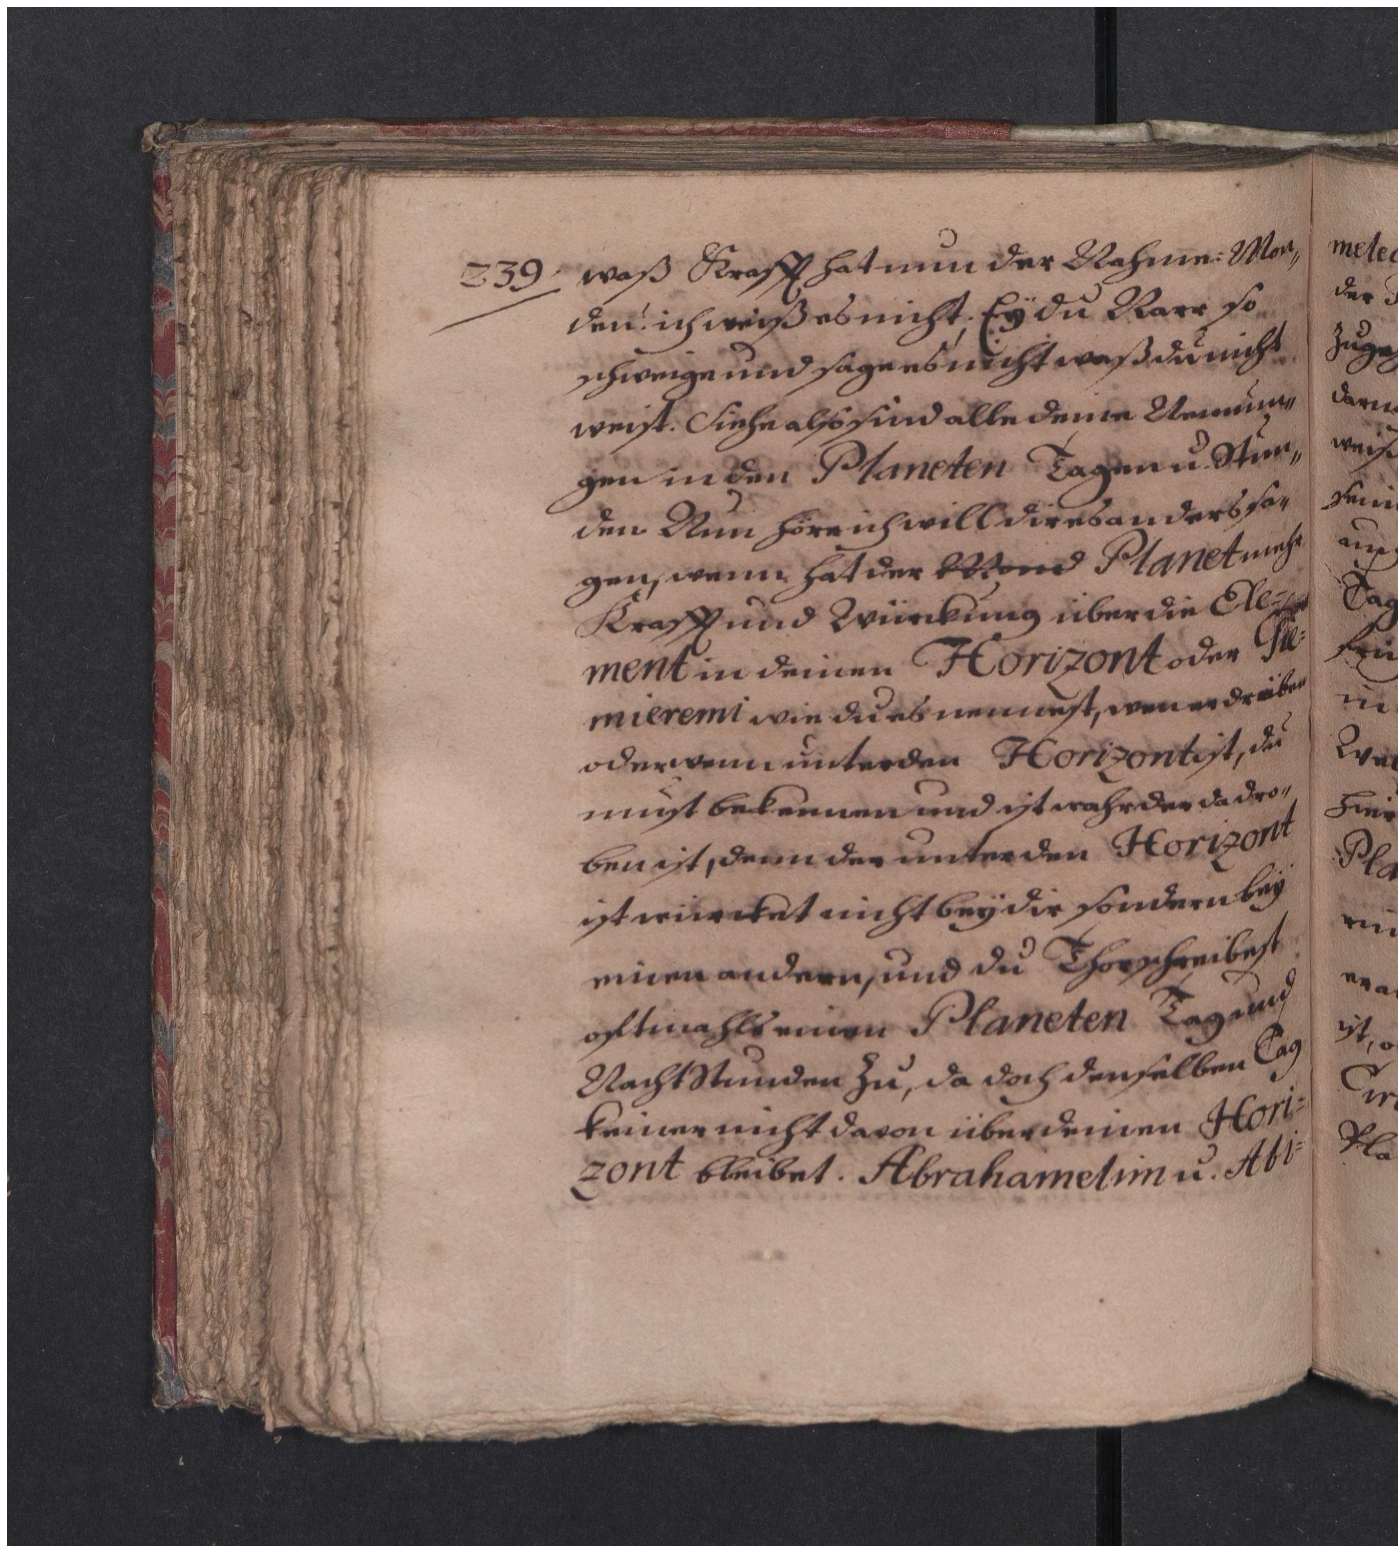 239 waß Krafft hat nun der Nahme: Mon„
den: ich weiß es nicht, Ey du Narr so
schweige und sage es nicht waß du nicht
weist. Siehe also sind alle deine Nennun„
gen in den Planeten Tagen u. Stun„
den Nun höre ich will dir es anders sa„
gen, wenn hat der Mond Planet mehr
Krafft und Würckung über die Ele=
ment in deinen Horizont oder
mieremi wie du es nennest, wen er drüber
oder wenn unter den Horizont ist, du
must bekennen und ist wahr der da dro„
ben ist, denn der unter den Horizont
ist würcket nicht bey dir sondern bey
einen andern, und du Thor schreibest
oftmahls einen Planeten Tag und
Nacht Stunden zu, da doch denselben Tag
keiner nicht davon über deinen Hori=
zont bleibet. Abrahamelim u. Abi=
der
ist,
Pla